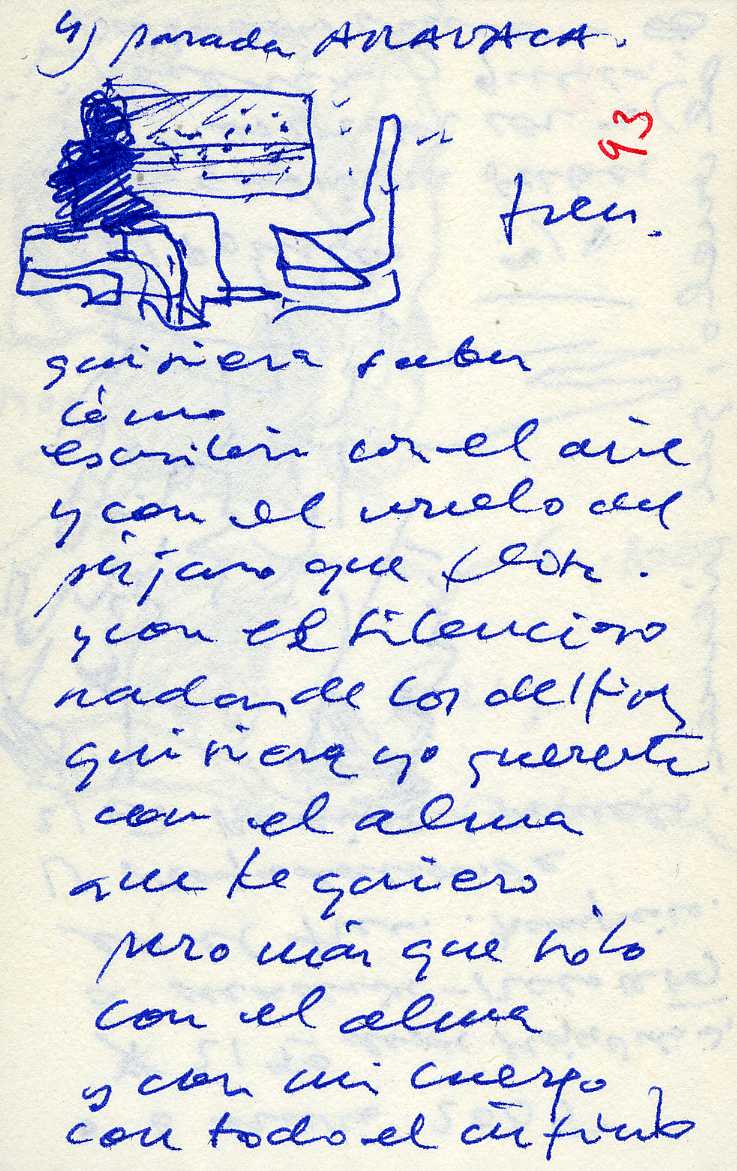 4) parada ARAVACA.
93
tren.
quisiera saber
cómo
escribir con el aire
y con el vuelo del
pájaro que flota.
y con el silencioso
nadar de los delfines
quisiera yo quererte
con el alma
que te quiero
pero más que sólo
con el alma
y con mi cuerpo
con todo el infinito